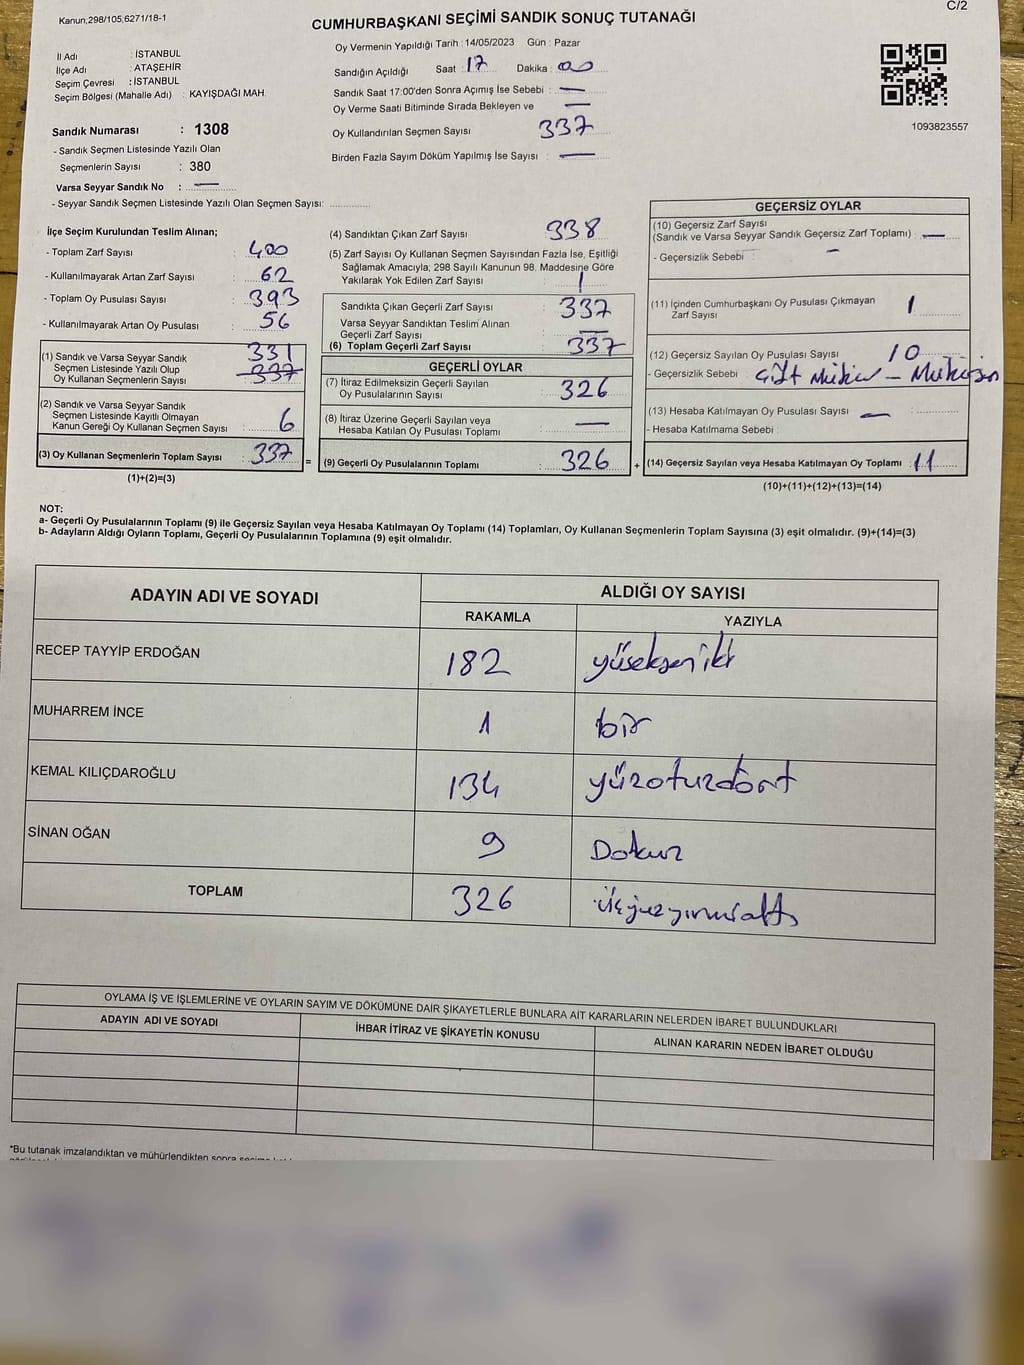 Kanun,298/105;6271/18-1
C/2
CUMHURBAŞKANI SEÇİMİ SANDIK SONUÇ TUTANAĞI
İl Adı : İSTANBUL
İlçe Adı : ATAŞEHİR
Seçim Çevresi : İSTANBUL
Seçim Bölgesi (Mahalle Adı) : KAYIŞDAĞI MAH.
Sandık Numarası : 1308
- Sandık Seçmen Listesinde Yazılı Olan
Seçmenlerin Sayısı : 380
Varsa Seyyar Sandık No : —
- Seyyar Sandık Seçmen Listesinde Yazılı Olan Seçmen Sayısı:
Oy Vermenin Yapıldığı Tarih : 14/05/2023 Gün : Pazar
Sandığın Açıldığı Saat : 17 Dakika : 00
Sandık Saat 17:00'den Sonra Açımış İse Sebebi : —
Oy Verme Saati Bitiminde Sırada Bekleyen ve —
Oy Kullandırılan Seçmen Sayısı 337
Birden Fazla Sayım Döküm Yapılmış İse Sayısı : —
1093823557
İlçe Seçim Kurulundan Teslim Alınan;
- Toplam Zarf Sayısı : 400
- Kullanılmayarak Artan Zarf Sayısı : 62
- Toplam Oy Pusulası Sayısı : 393
- Kullanılmayarak Artan Oy Pusulası : 56
(1) Sandık ve Varsa Seyyar Sandık 331
Seçmen Listesinde Yazılı Olup : 337
Oy Kullanan Seçmenlerin Sayısı
(2) Sandık ve Varsa Seyyar Sandık
Seçmen Listesinde Kayıtlı Olmayan
Kanun Gereği Oy Kullanan Seçmen Sayısı : 6
(3) Oy Kullanan Seçmenlerin Toplam Sayısı : 337
(1)+(2)=(3)
(4) Sandıktan Çıkan Zarf Sayısı : 338
(5) Zarf Sayısı Oy Kullanan Seçmen Sayısından Fazla İse, Eşitliği
Sağlamak Amacıyla; 298 Sayılı Kanunun 98. Maddesine Göre
Yakılarak Yok Edilen Zarf Sayısı : 1
Sandıkta Çıkan Geçerli Zarf Sayısı : 337
Varsa Seyyar Sandıktan Teslim Alınan
Geçerli Zarf Sayısı : —
(6) Toplam Geçerli Zarf Sayısı : 337
GEÇERLİ OYLAR
(7) İtiraz Edilmeksizin Geçerli Sayılan
Oy Pusulalarının Sayısı : 326
(8) İtiraz Üzerine Geçerli Sayılan veya
Hesaba Katılan Oy Pusulası Toplamı : —
= (9) Geçerli Oy Pusulalarının Toplamı : 326 +
GEÇERSİZ OYLAR
(10) Geçersiz Zarf Sayısı
(Sandık ve Varsa Seyyar Sandık Geçersiz Zarf Toplamı) : —
- Geçersizlik Sebebi : —
(11) İçinden Cumhurbaşkanı Oy Pusulası Çıkmayan
Zarf Sayısı : 1
(12) Geçersiz Sayılan Oy Pusulası Sayısı : 10
- Geçersizlik Sebebi : Çift Mühür –
(13) Hesaba Katılmayan Oy Pusulası Sayısı : —
- Hesaba Katılmama Sebebi :
(14) Geçersiz Sayılan veya Hesaba Katılmayan Oy Toplamı : 11
(10)+(11)+(12)+(13)=(14)
NOT:
a- Geçerli Oy Pusulalarının Toplamı (9) ile Geçersiz Sayılan veya Hesaba Katılmayan Oy Toplamı (14) Toplamları, Oy Kullanan Seçmenlerin Toplam Sayısına (3) eşit olmalıdır. (9)+(14)=(3)
b- Adayların Aldığı Oyların Toplamı, Geçerli Oy Pusulalarının Toplamına (9) eşit olmalıdır.
ADAYIN ADI VE SOYADI ALDIĞI OY SAYISI
RAKAMLA YAZIYLA
RECEP TAYYİP ERDOĞAN 182 yüseksen iki
MUHARREM İNCE 1 bir
KEMAL KILIÇDAROĞLU 134 yüzotuzdört
SİNAN OĞAN 9 Dokuz
TOPLAM 326 üçyüzyirmialtı
OYLAMA İŞ VE İŞLEMLERİNE VE OYLARIN SAYIM VE DÖKÜMÜNE DAİR ŞİKAYETLERLE BUNLARA AİT KARARLARIN NELERDEN İBARET BULUNDUKLARI
ADAYIN ADI VE SOYADI İHBAR İTİRAZ VE ŞİKAYETİN KONUSU ALINAN KARARIN NEDEN İBARET OLDUĞU
*Bu tutanak imzalandıktan ve mühürlendikten sonra